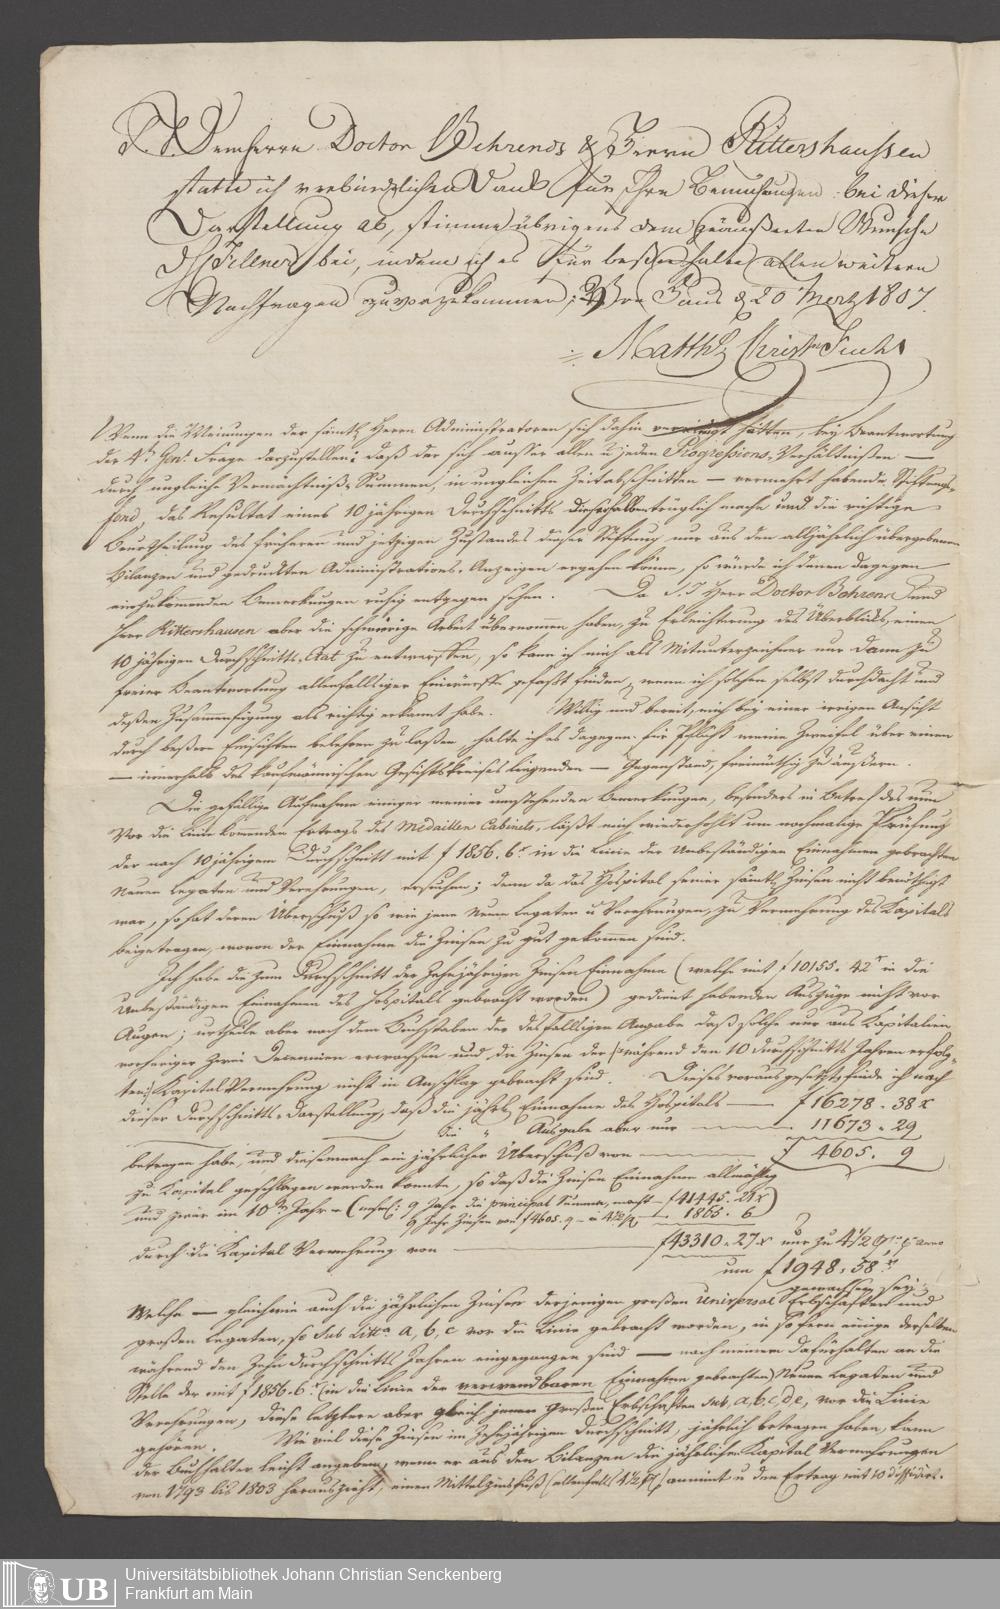 P. P. Dem Herrn Doctor Behrends & Herrn Rittershaussen
statte ich verbindlichen Dank für Ihre Bemühungen bei dieser
Darstellung ab, stimme übrigens dem geäußerten Wunsche
bei, indem ich es für besser halte allen weitern
Nachfragen zuvorzukommen; Von Haus d 20 Mertz 1807.
Matths Christn Fuchs
Wenn die Meinungen der sämtl. Herrn Administratoren sich dahin vereinigt hätten, bey Beantwortung
der Frage darzustellen: daß der sich ausser allen u jeden Progressions-Verhältnißen —
durch ungleiche Vermächtniß-Summen, in ungleichen Zeitabschnitten — vermehrt habende Stiftungs-
fond, das Resultat eines 10 jährigen Durchschnitts dieserhalben trüglich mache und die richtige
Beurtheilung des früheren und jetzigen Zustandes dieser Stiftung nur aus den alljährlich übergebenen
Bilanzen und gedruckten Administrations-Anzeigen ergehen könne, so würde ich denen dagegen
einzukommenden Bemerkungen ruhig entgegen sehen. Da P. P. Herr Doctor Behrens und
Herr Rittershausen aber die schwürige Arbeit übernommen haben, zu Erleichterung des Überblicks, einen
10 jährigen Durchschnitts-Etat zu entwerffen, so kann ich mich als Mitunterzeichner nur dann zu
freier Beantwortung allenfallsiger Einwürffe gefaßt finden, wenn ich solchen selbst durchdacht und
deßen Zusammenfügung als richtig erkannt habe. Willig und bereit, mich bey einer irrigen Ansicht
durch beßere Einsichten belehren zu laßen, halte ich es dagegen für Pflicht meine Zweifel über einen
— innerhalb des kaufmännischen Gesichtskreises liegenden — Gegenstand, freimüthig zu äußern.
Die gefällige Aufnahme einiger meiner umstehenden Bemerkungen, besonders in Betref des nun
vor die Linie kommenden Ertrags des Medaillen Cabinets, läßt mich wiederhohlt um nochmalige Prüfung
der nach 10 jährigem Durchschnitt mit f 1856. 6 x in die Linie der Unbeständigen Einnahmen gebrachten
Neuen Legaten und Verehrungen, ersuchen; denn da das Hospital seiner sämtl. Zinsen nicht benöthigt
war, so hat deren Überschuß so wie jene Neue Legaten u Verehrungen, zu Vermehrung des Kapitals
beigetragen, wovon der Einnahme die Zinsen zu gut gekommen sind.
Ich habe die zum Durchschnitt der Zehnjährigen Zinsen Einnahme (welche mit f 10155. 42 x in die
Unbeständigen Einnahmen des Hospitals gebracht worden) gedient habenden Auszüge nicht vor
Augen; urtheile aber nach dem Buchstaben der desfallsigen Angabe daß solche nur aus Kapitalien
voriger zwei Decennien erwachsen und die Zinsen der während den 10 Durchschnitts Jahren erfolg-
ten Kapital Vermehrung nicht in Anschlag gebracht sind. Dieses vorausgesetzt, finde ich nach
dieser Durchschnitts-Darstellung, daß die jährl. Einnahme des Hospitals — f 16278. 38 x
die " Ausgabe aber nur — 11673. 29
betragen habe, und diesemnach ein jährlicher Überschuß von — f 4605. 9
zu Kapital geschlagen werden konnte, so daß die Zinsen Einnahme allmählig
und zwar im 10ten Jahr – (nehml: 9 Jahr die principal Summe, macht – f 41445. 21 x)
9 Jahr Zinsen von f 4605. 9 – a 4 1/2 % — 1865. 6
durch die Kapital Vermehrung von — f 43310. 27 x nur zu 4 1/2 % p anno
um f 1948. 58 x
gewachsen sey;
Welche — gleichwie auch die jährlichen Zinsen derjenigen großen Universal Erbschaften und
großen Legaten, so sub Litta a, b, c vor die Linie gebracht worden, in so fern einige derselben
während den Zehn Durchschnitts Jahren eingegangen sind — nach meinem Dafürhalten an die
Stelle der mit f 1856. 6 x (in die Linie der verwendbaren Einnahme gebrachten) Neuen Legaten und
Verehrungen, diese letztere aber gleich jenen großen Erbschaften sub, a, b, c, d, e, vor die Linie
gehören. Wie viel diese Zinsen im Zehnjährigen Durchschnitt, jährlich betragen haben, kann
der Buchhalter leicht angeben, wenn er aus den Bilanzen die jährlichen Kapital Vermehrungen
von 1793 bis 1803 herauszieht, einen Mittelzinsfuß (allenfalls 4 1/2 %) annimt u den Ertrag mit 10 dividirt.
Universitätsbibliothek Johann Christian Senckenberg
Frankfurt am Main
UB